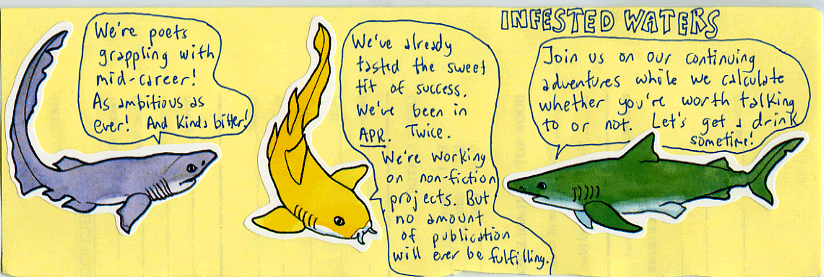 INFESTED WATERS
We're poets
grappling with
mid-career!
As ambitious as
ever! And kinda bitter!
We've already
tasted the sweet
tit of success.
We've been in
APR. Twice.
We're working
on non-fiction
projects. But
no amount
of publication
will ever be fulfilling.
Join us on our continuing
adventures while we calculate
whether you're worth talking
to or not. Let's get a drink
sometime!